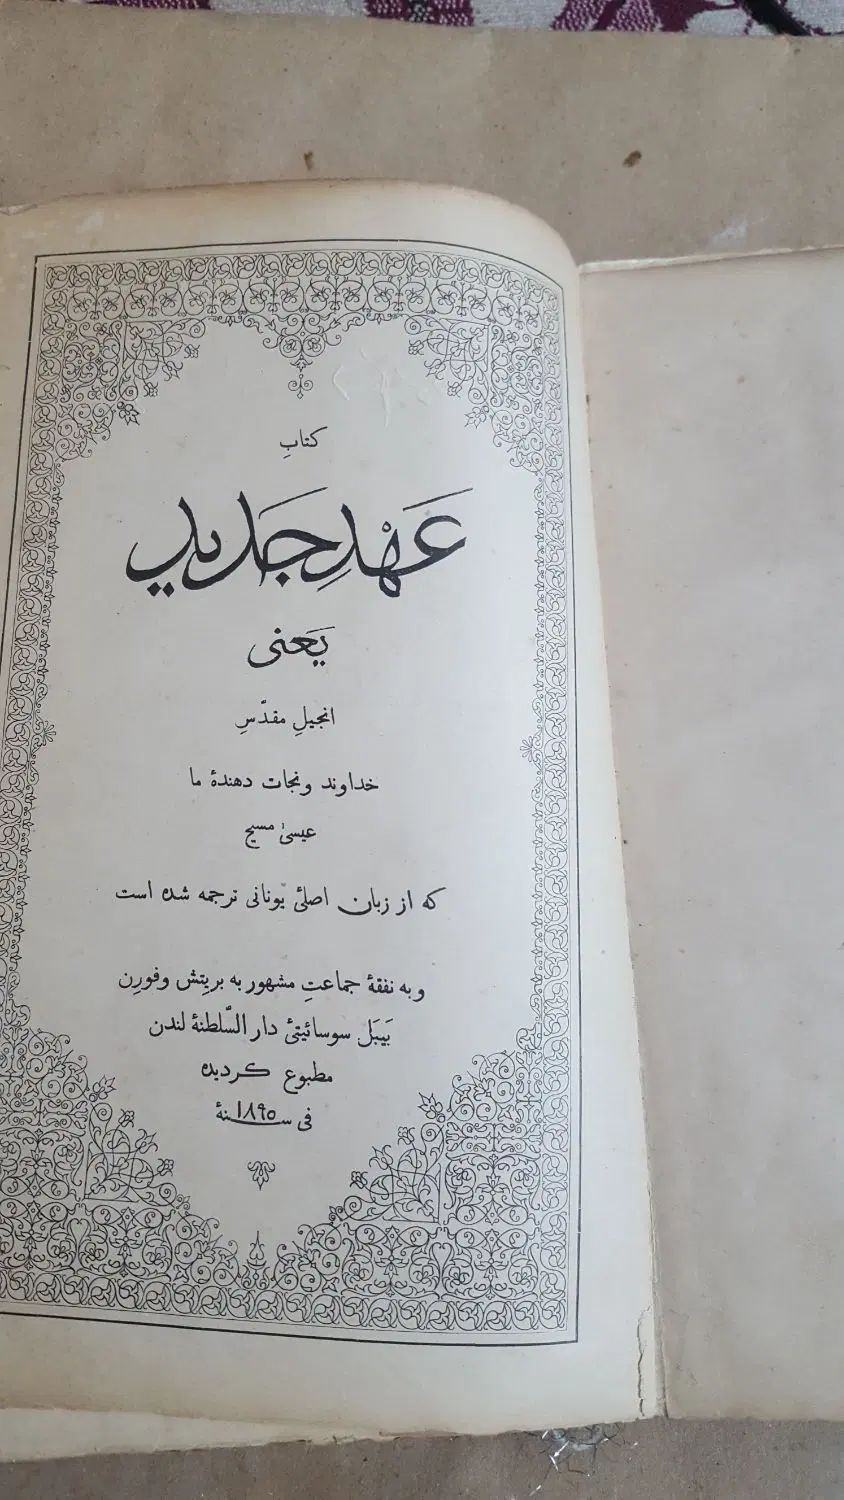 کتابِ
عَهْدِ جَدید
یَعنی
انجیلِ مقدّسِ
خداوند ونجات دهندهٔ ما
عیسیٰ مسیح
که از زبان اصلیٔ یونانی ترجمه شده است
وبه نفقهٔ جماعتِ مشهور به بریتش وفورِن
بَیبَل سوسائیتیٔ دار السّلطنهٔ لندن
مطبوع کردیده
فی سنهٔ ۱۸۹۵